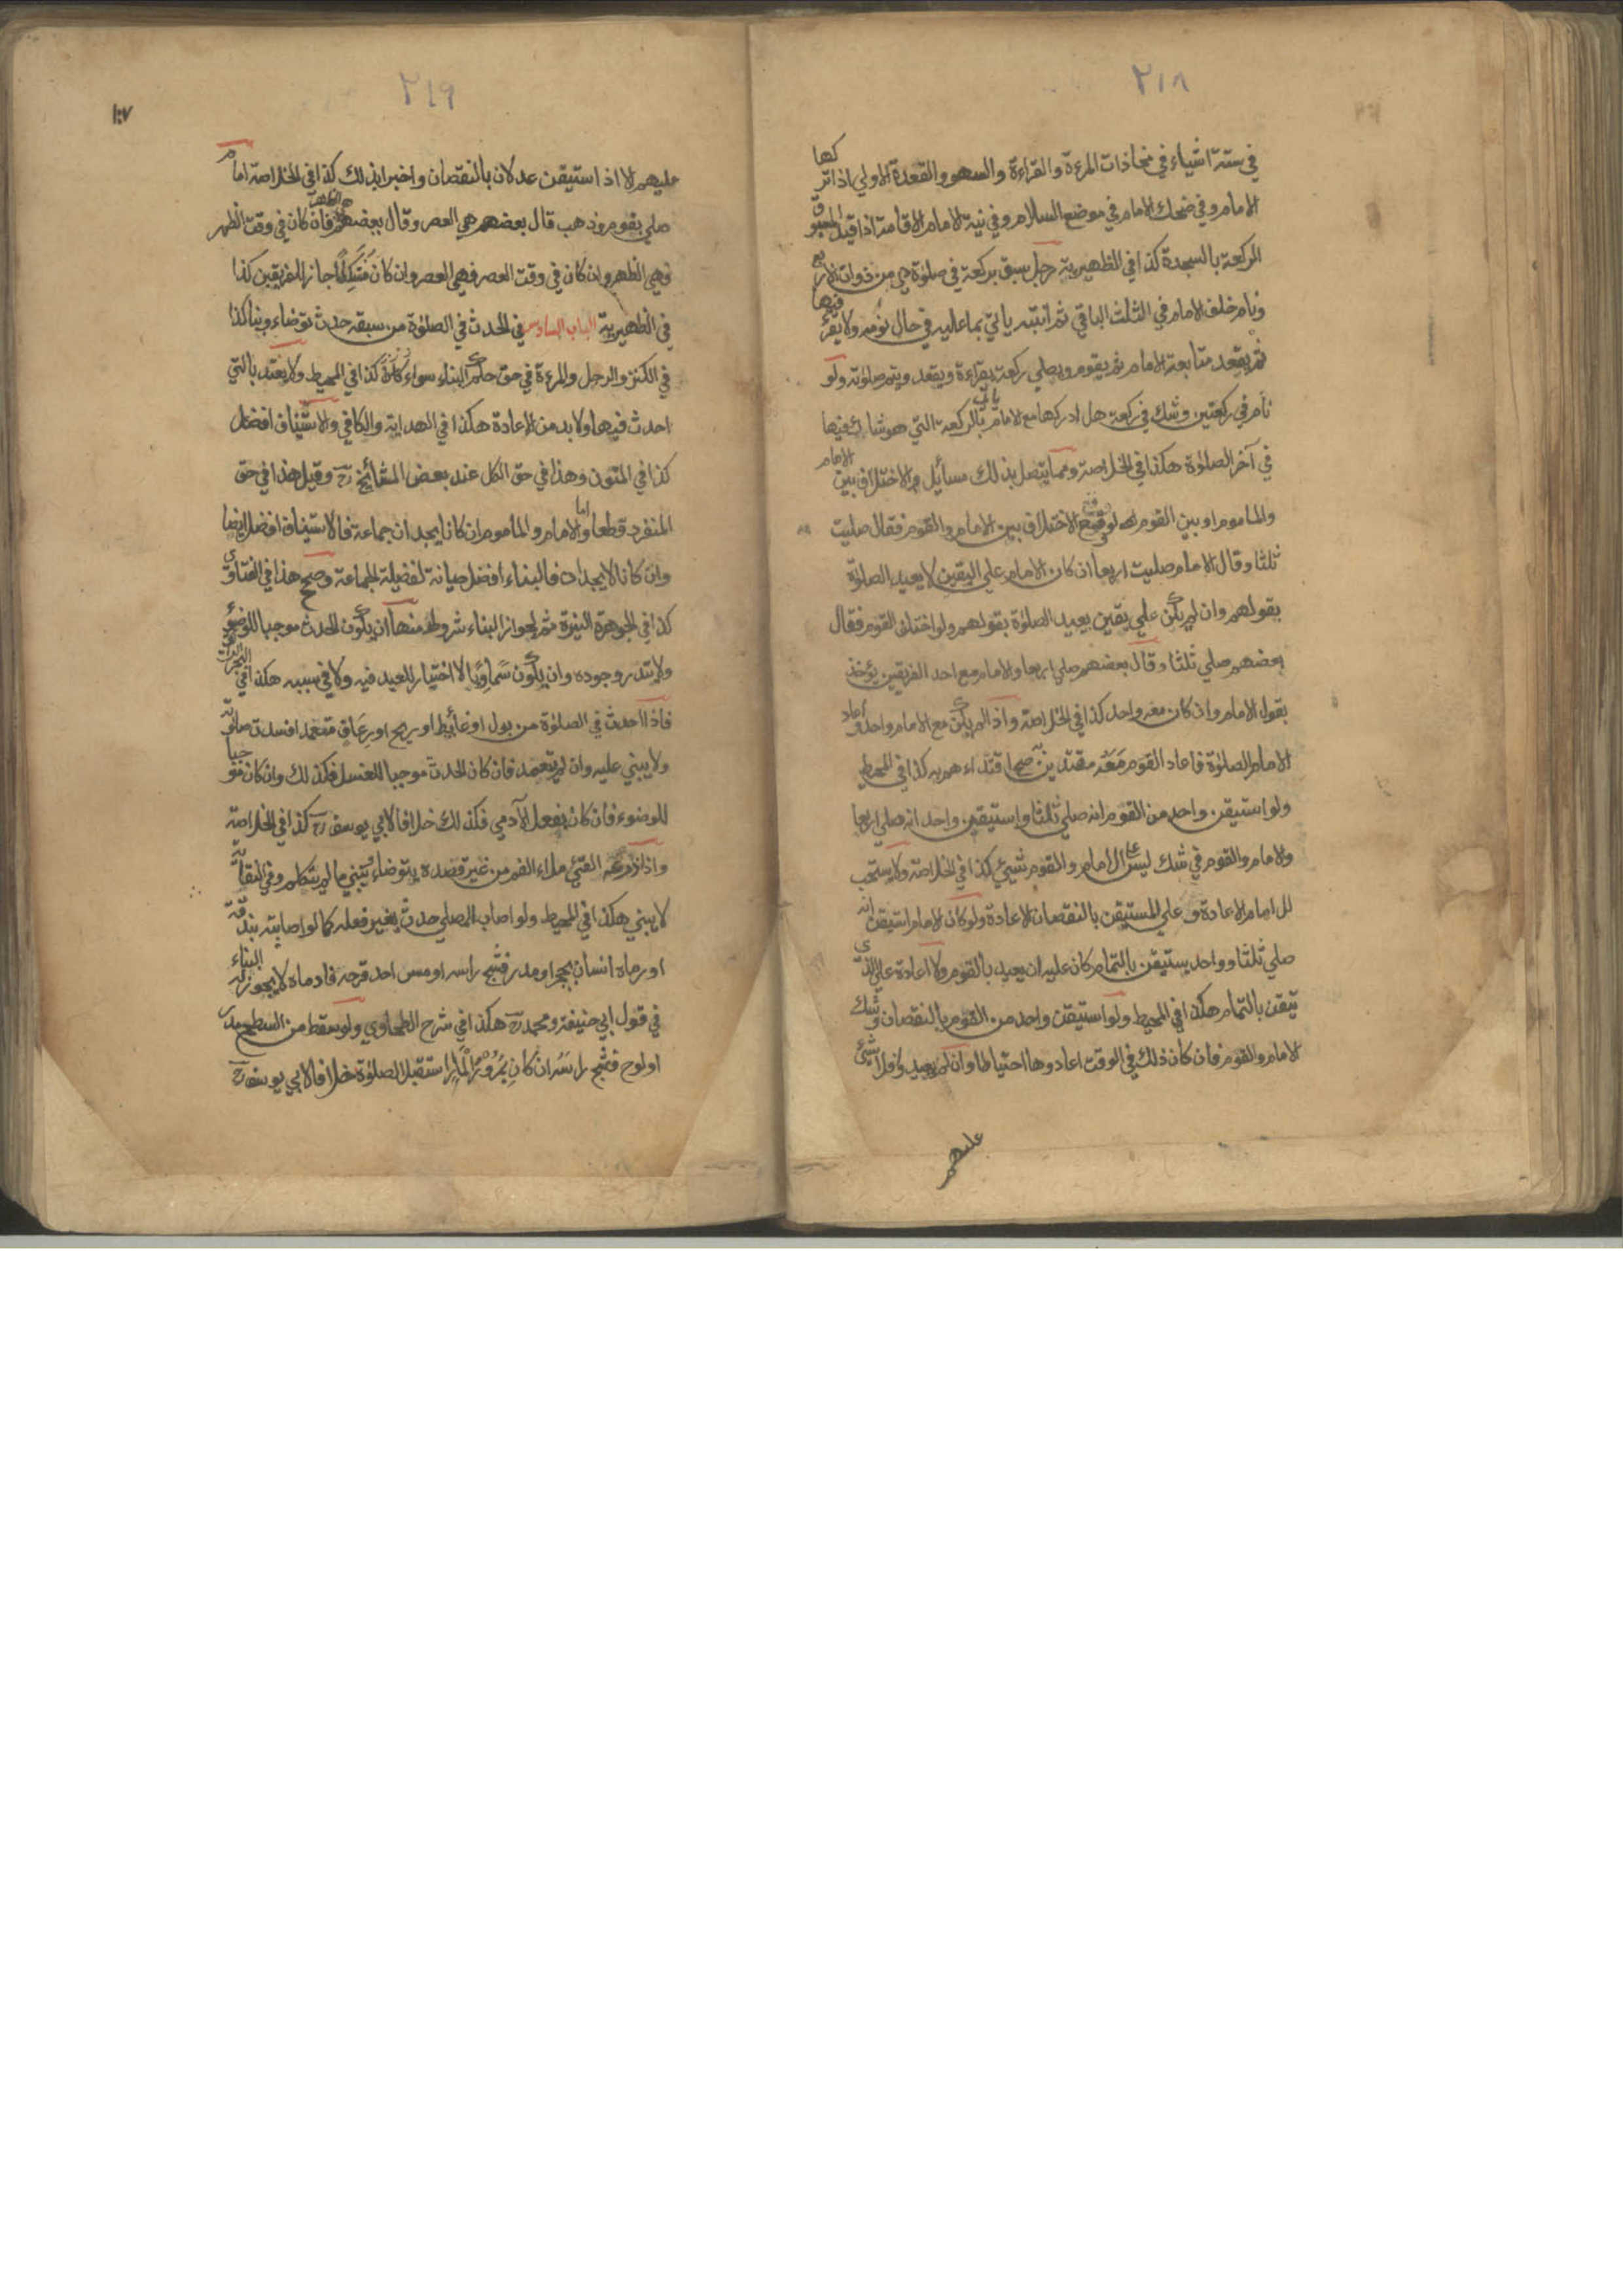 ٢١٨
في ستة اشياء في محاذات المرءة والقراءة والسهو والقعدة الاولي اذا تركها
الامام وفي ضحك الامام في موضع السلام وفي نية الامام الاقامة اذا قيد المسبوق
الركعة بالسجدة كذا في الظهيرية رجل سبق بركعة في صلوة هي من ذوات الاربع
ونام خلف الامام في الثلث الباقي ثم انتبه ياتي بما عليه في حال نومه ولا يقرء فيها
ثم يقعد متابعة الامام ثم يقوم ويصلي ركعة بقراءة ويقعد ويتم صلوته ولو
نام في ركعتين وشك في ركعة هل ادركها مع الامام ياتي بالركعة التي هو شاك فيها
في آخر الصلوة هكذا في الخلاصة ومما يتصل بذلك مسائل الاختلاف بين الامام
والماموم او بين القوم لو وقع الاختلاف بين الامام والقوم فقال صليت
ثلثا وقال الامام صليت اربعا ان كان الامام علي اليقين لا يعيد الصلوة
بقولهم وان لم يكن علي يقين يعيد الصلوة بقولهم ولو اختلف القوم فقال
بعضهم صلي ثلثا وقال بعضهم صلي اربعا والامام مع احد الفريقين يؤخذ
بقول الامام وان كان معه واحد كذا في الخلاصة واذا لم يكن مع الامام واحد واعاد
الامام الصلوة فاعاد القوم معه مقتدين به صح اقتداءهم به كذا في المحيط
ولو استيقن واحد من القوم انه صلي ثلثا واستيقن واحد انه صلي اربعا
والامام والقوم في شك ليس علي الامام والقوم شيئ كذا في الخلاصة ولا يستحب
للامام الاعادة وعلي المستيقن بالنقصان الاعادة ولو كان الامام استيقن انه
صلي ثلثا وواحد يستيقن بالتمام كان عليه ان يعيد بالقوم ولا اعادة علي الذي
تيقن بالتمام هكذا في المحيط ولو استيقن واحد من القوم بالنقصان وشك
الامام والقوم فان كان ذلك في الوقت اعادوها احتياطا وان لم يعيدوا فلا شيئ
عليهم
٢١٩
١٠٧
عليهم الا اذا استيقن عدلان بالنقصان واخبرا بذلك كذا في الخلاصة امام
صلي بقوم وذهب قال بعضهم هي العصر وقال بعضهم هي الظهر فان كان في وقت الظهر
فهي الظهر وان كان في وقت العصر فهي العصر وان كان مشكلا جاز للفريقين كذا
في الظهيرية الباب السادس في الحدث في الصلوة من سبقه حدث توضاء وبنا كذا
في الكنز والرجل والمرءة في حق حكم البناء سواء كذا في المحيط ولا يعتد بالتي
احدث فيها ولا بد من الاعادة هكذا في الهداية والكافي والاستيناف افضل
كذا في المتون وهذا في حق الكل عند بعض المشائخ رح وقيل هذا في حق
المنفرد قطعا واما الامام والماموم ان كانا يجدان جماعة فالاستيناف افضل ايضا
وان كانا لا يجدان فالبناء افضل صيانة لفضيلة الجماعة وصح هذا في الفتاوي
كذا في الجوهرة النيرة ثم لجواز البناء شروط منها ان يكون الحدث موجبا للوضوء
ولا يندر وجوده وان يكون سماويا لا اختيار للعبد فيه ولا في سببه هكذا في البحر الرائق
فاذا احدث في الصلوة من بول او غائط او ريح او رعاف متعمدا فسدت صلوته
ولا يبني عليه وان لم يتعمد فان كان الحدث موجبا للغسل فكذلك وان كان موجبا
للوضوء فان كان بفعل الآدمي فكذلك خلافا لابي يوسف رح كذا في الخلاصة
واذا ذرعه القئ ملاء الفم من غير قصده يتوضاء ويبني ما لم يتكلم وفي التقيأ
لا يبني هكذا في المحيط ولو اصاب المصلي حدث بغير فعله كما لو اصابته بندقة
او رماه انسان بحجر او مدر فشج راسه او مس احد قرحه فادماه لا يجوز له البناء
في قول ابي حنيفة ومحمد رح هكذا في شرح الطحاوي ولو سقط من السطح مدر
او لوح فشج راسه ان كان بمرور المار استقبل الصلوة خلافا لابي يوسف رح